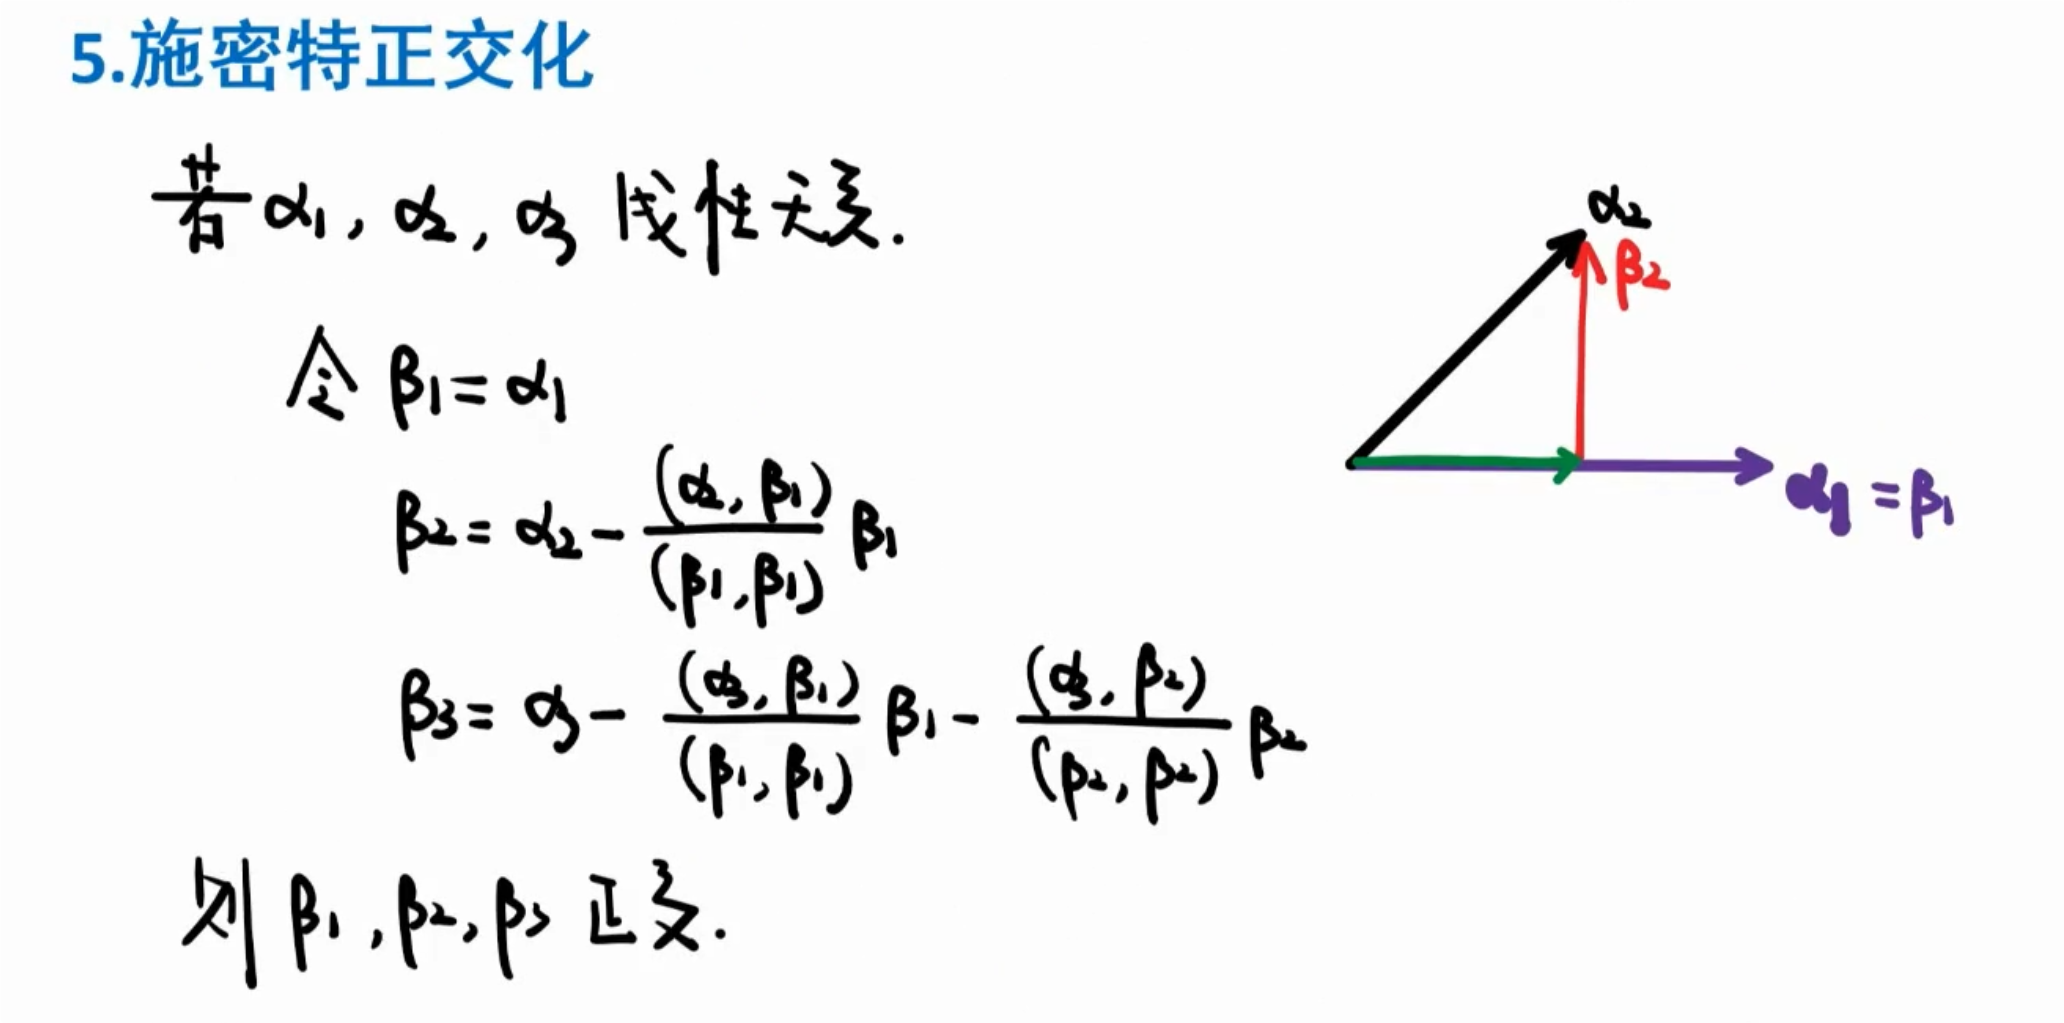 5.施密特正交化
若 α₁, α₂, α₃ 线性无关.
令 β₁ = α₁
β₂ = α₂ - (α₂, β₁)/(β₁, β₁) β₁
β₃ = α₃ - (α₃, β₁)/(β₁, β₁) β₁ - (α₃, β₂)/(β₂, β₂) β₂
则 β₁, β₂, β₃ 正交.
α₂
β₂
α₁ = β₁